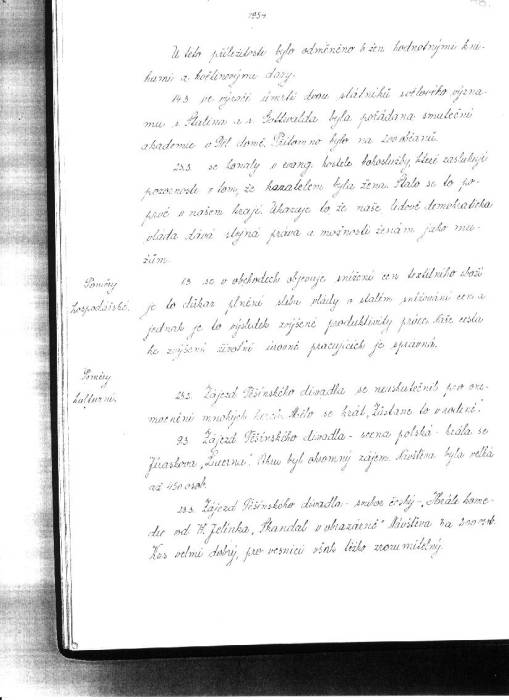 1954
U této příležitosti bylo odměněno 6 žen hodnotnými kni-
hami a květinovými dary.
14.3. ve výročí úmrtí dvou státníků světového význa-
mu s. Stalina a s. Gottwalda byla pořádána smuteční
akademie v Děl. domě. Přítomno bylo na 200 občanů.
28.3. se konaly v evang. kostele bohoslužby, které zasluhují
pozornost o tom, že kazatelem byla žena. Stalo se to po-
prvé v našem kraji. Ukazuje to že naše lidově demokratická
vláda dává stejná práva a možnosti ženám jako mu-
žům.
Poměry
hospodářské.
1.3. se v obchodech objevuje snížení cen textilního zboží
je to důkaz plnění slibu vlády o stálém snižování cen a
jednak je to výsledek zvýšené produktivity práce. Naše cesta
ke zvýšení životní úrovně pracujících je správná.
Poměry
kulturní.
28.2. Zájezd Těšínského divadla se neuskutečnil pro one-
mocnění mnohých herců. Mělo se hrát „Zůstane to v rodině".
9.3. Zájezd Těšínského divadla - scena polská - hrála se
Jiráskova „Lucerna". Byl ohromný zájem. Návštěva byla veliká
až 450 osob.
23.3. Zájezd Těšínského divadla - soubor český - Hráli kome-
dii od H. Jelínka, „Skandal v obrazárně" Návštěva na 200 osob.
Kus velmi dobrý, pro vesnici však těžko srozumitelný.